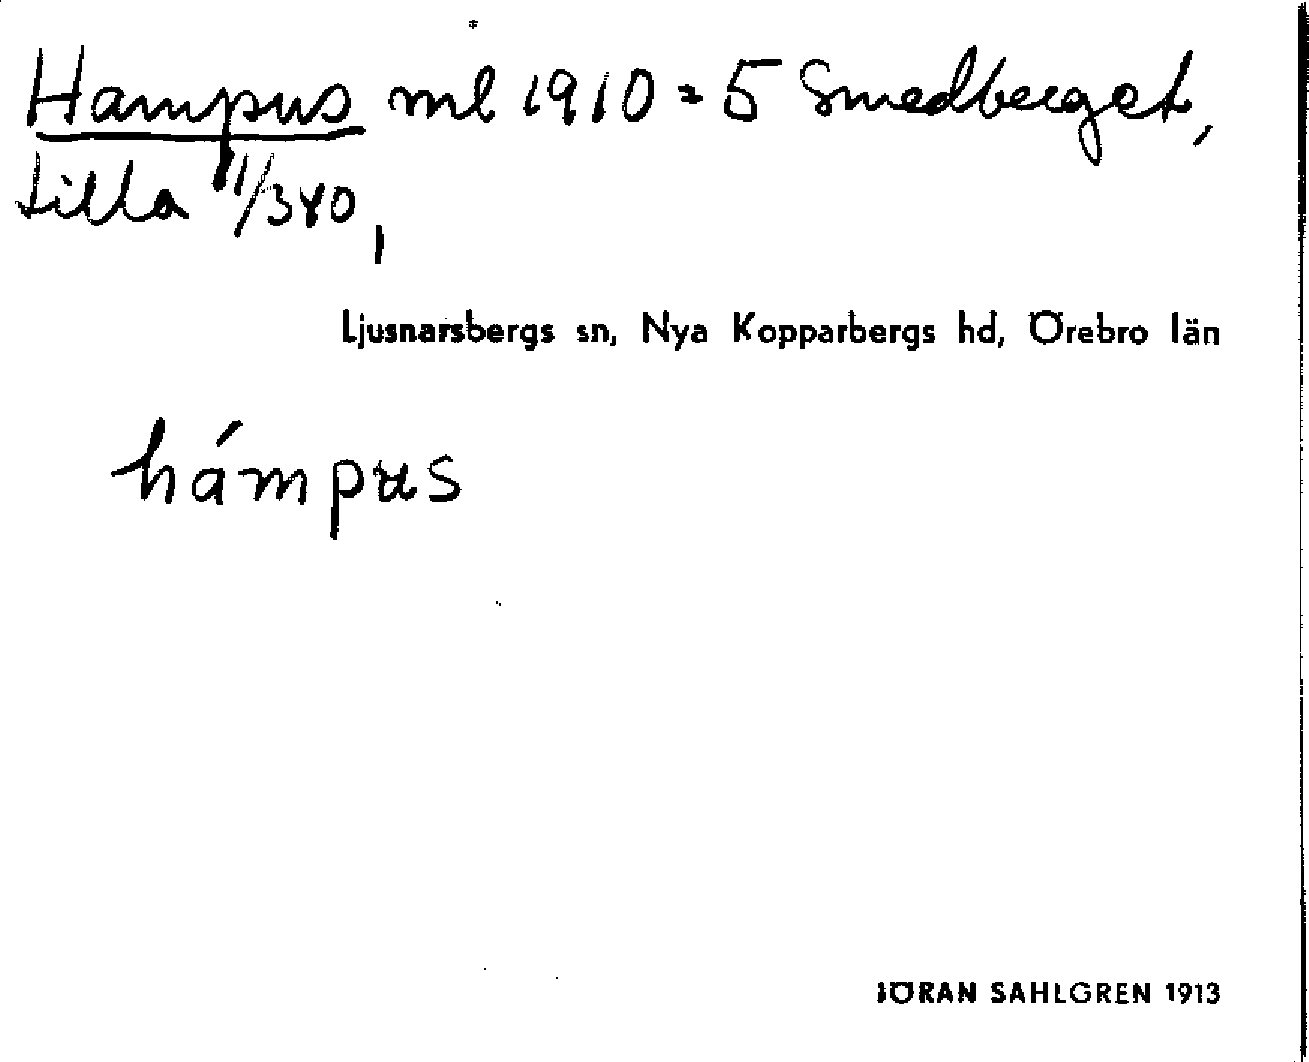 Hampus ml 1910 = 5 Smedberget,
Lilla 1/340,
Ljusnarsbergs sn, Nya Kopparbergs hd, Örebro län
hámpus
JÖRAN SAHLGREN 1913